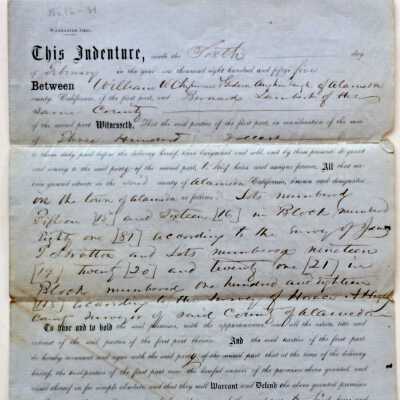 WARRANTEE DEED.
This Indenture, made the Sixth day
of February in the year one thousand eight hundred and fifty five
Between William W Chipman & Gideon Aughinbaugh of Alameda
county, California, of the first part, and Bernard of the
Same County
of the second part Witnesseth, That the said parties of the first part, in consideration of the sum
of Three Hundred Dollars
to them duly paid before the delivery hereof, have bargained and sold, and by these presents do grant
and convey to the said party of the second part, his heirs and assigns forever, All that
situate in the said county of Alameda California, known and designated
on the town of Alameda as follows: Lots numbered
Fifteen [15] and Sixteen [16] in Block numbered
Eighty one [81] according to the survey of James
T Stratton and Lots numbering nineteen
[19] twenty [20] and twenty one [21] in
Block numbered one hundred and eighteen
[118] according to the Survey of Horace A Higley
County Surveyor of said County of Alameda
To have and to hold the said premises, with the appurtenances, and all the estate, title and
interest of the said parties of the first part therein. And the said parties of the first part
do hereby covenant and agree with the said party of the second part, that at the time of the delivery
hereof, the said parties of the first part were the lawful owners of the premises above granted, and
seized thereof in fee simple absolute and that they will Warrant and Defend the above granted premises